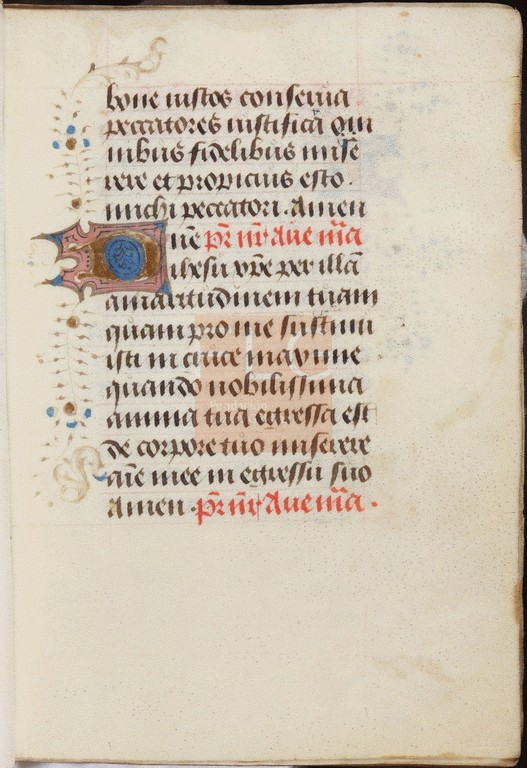 bone iustos conserua
peccatores iustifica om
nibus fidelibus mise
rere et propicius esto.
michi peccatori. Amen
Dñe pr̄ nr̄ Aue mīa
ihesu xp̄e per illā
amaritudinem tuam
quam pro me sustinu
isti in cruce maxime
quando nobilissima
anima tua egressa est
de corpore tuo miserere
aīe mee in egressu suo
Amen. pr̄ nr̄ Aue mīa.